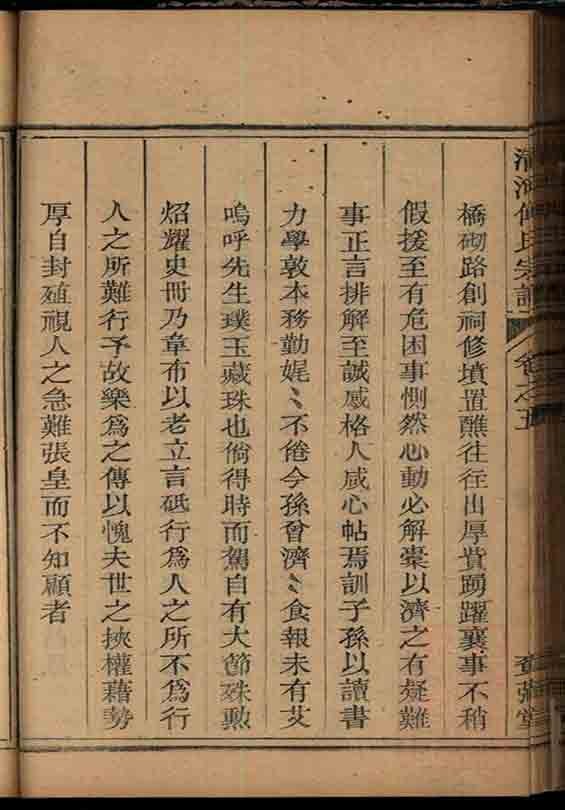 橋砌路創祠修墳置醮往往出厚貲踴躍襄事不稍
假援至有危困事惻然心動必解橐以濟之有疑難
事正言排解至誠感格人咸心帖焉訓子孫以讀書
力學敦本務勤娓〻不倦今孫曾濟〻食報未有艾
嗚呼先生璞玉藏珠也倘得時而駕自有大節殊勲
炤耀史冊乃韋布以老立言砥行為人之所不為行
人之所難行予故樂為之傳以愧夫世之挾權藉勢
厚自封殖視人之急難張皇而不知顧者
氏宗譜 卷之五 堂